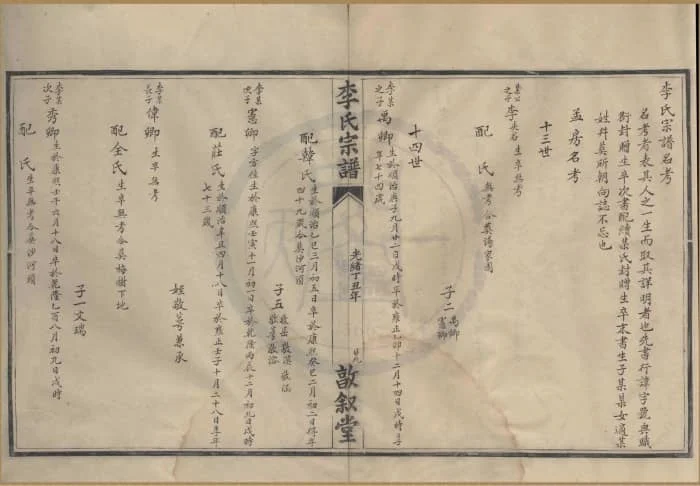 李氏宗譜名考
名考者表其人之一生而取其詳明者也先書行諱字號與職
衘封贈生卒次書配續某氏封贈生卒末書生子某某女適某
姓并葬所朝向誌不忘也
孟房名考
十三世
之子 李失名 生卒無考
配 氏 無考合葬湯家園
子二 禹卿 憲卿
十四世
李某之子 禹卿 生於順治庚子九月廿一日戌時卒於雍正己卯十二月十四日戌時享
年七十四歲
李氏宗譜
光緒丁丑年
廿九
敔叙堂
配韓氏 生於順治乙巳三月初五日卒於康熙癸巳二月初二日得年
四十九歲合葬沙河頭
子五 敬 敬漢 敬涵 敬籌 敬浴
李某次子 憲卿 字方佳生於康熙壬寅十一月初一日卒於乾隆丙辰十二月初九日戌時
配莊氏 生於順治辛丑四月十八日卒於雍正壬子十月二十八日享年
七十三歲
姪敬籌兼承
李某長子 偉卿 生卒無考
配全氏 生卒無考合葬梅樹下地
子一文瑞
李某次子 秀卿 生於康熙壬午六月十八日卒於乾隆乙酉八月初九日戌時
配 氏 生卒無考合葬沙河頭